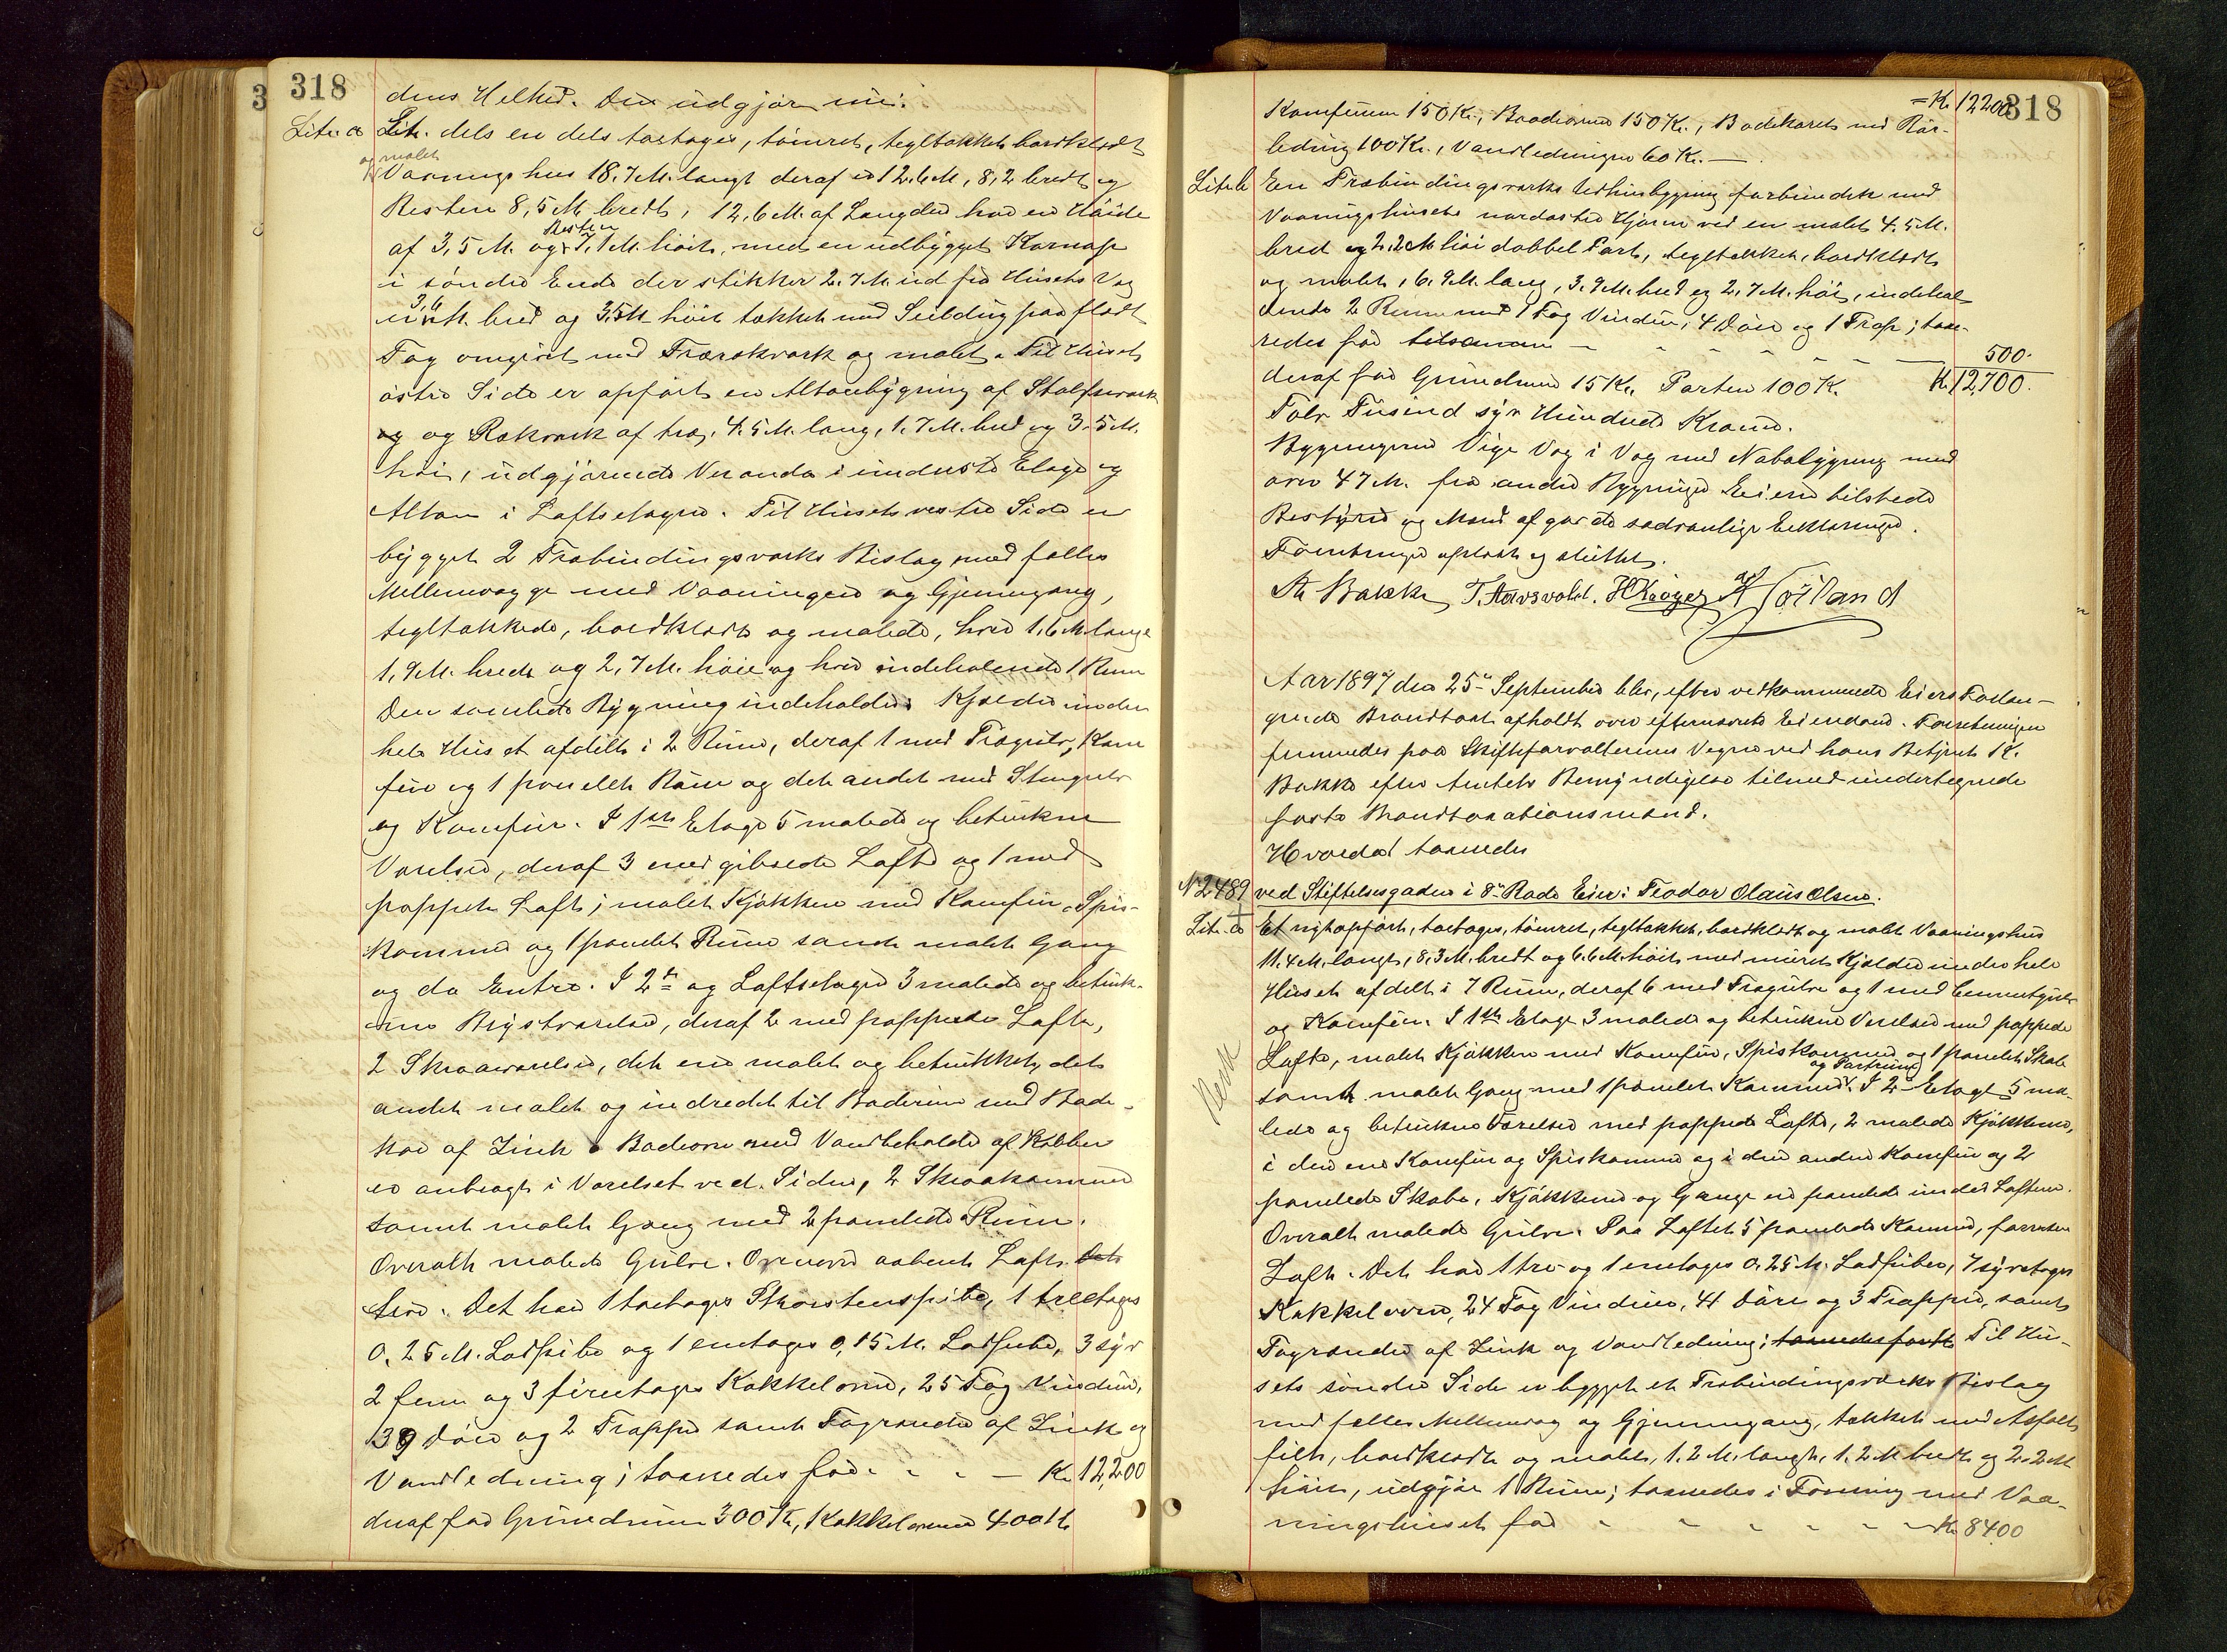 318
dens Helhed. Den udgjør nu:
Litr. a Litr. dels en dels toetages, tømret, tegltækket bordklædt
og malet
Vaaningshus 18.7 M. langt deraf er 12.6 M, 8,2 bredt og
Resten 8,5 M bredt, 12,6 M. af Længden har en Høide
Resten
af 3,5 M. og 7,1 M. høit, med en udbygget Karnap
i søndre Ende der stikker 2.7 M. ud fra Husets Væg
3,6
M. bred og 3,5 M høit tækket med Spil paa fladt
Tag omgivet med Træværk og malet. Til Husets
østre Side er opført en Altanbygning af Stolpeværk
og og Rækværk af træ, 4.5 M. lang, 1.7 M. bred og 3.5 M.
høi, udgjørende Veranda i underste Etage og
Altan i Loftsetagen. Til Husets vestre Side er
bygget 2 Træbindingsværks Bislag med fælles
Mellemvægge med Vaaningen og Gjennemgang,
tegltækkede, bordklædte og malede, hver 1,6 M. lange
1,9 M. brede og 2,7 M. høie og hver indeholdende 1 Rum
Den samlede Bygning indeholder: Kjælder under
hele Huset afdelt i 2 Rum, deraf 1 med Trægulv, Kom
fur og 1 panelet Rum og det andet med Stengulv
og Komfur. I 1ste Etage 5 malede og betrukne
Værelser, deraf 3 med gibsede Lofte og 1 med
pappet Loft; malet Kjøkken med Komfur, Spis-
kammer og 1 panelet Rum samt malet Gang
og do Entre. I 2den og Loftsetagen 3 malede og betruk-
ne Brystværelser, deraf 2 med pappede Lofte,
2 Skraaværelser, det ene malet og betrukket, det
andet malet og indredet til Baderum med Bade-
kar af Zink. Badeovn med Vandbeholder af Kobber
er anbragt i Værelset ved Siden, 2 Skraakammer
samt malet Gang med 2 panelede Rum.
Overalt malede Gulve. Ovenover aabent Loft. Det
Det har 1 toetages Skorstenspibe, 1 treetages
0.25 M. Lodpibe og 1 enetages 0,15 M. Lodpibe, 3 syv
2 fem og 3 fireetages Kakkelovne, 25 Fag Vinduer,
39 Døre og 2 Trapper samt Tagrender af Zink og
Vandledning; taxeredes for - - - Kr. 12,200
deraf for Grundmur 300 Kr, Kakkelovnene 400 Kr
318
= Kr. 12200
Komfurene 150 Kr., Badeovnen 150 Kr., Badekaret med Rør-
ledning 100 Kr., Vandledningen 60 Kr. —
Litr. b En Træbindingsværks Udhusbygning forbundet med
Vaaningshusets nordøstre Hjørne ved en malet 4.5 M.
bred og 2.2 M høi dobbel Port, tegltækket, bordklædt
og malet, 6.9 M. lang, 3.9 M. bred og 2,7 M. høi, indehol
dende 2 Rum med 1 Fag Vindu, 4 Døre og 1 Trap; taxe-
redes for tilsammen - - - - - 500.
deraf for Grundmur 15 Kr, Porten 100 K. Kr. 12,700.
Tolv Tusind syv Hundrede Kroner.
Bygningerne Væg i Væg med Nabobygning med
over 47 M. fra andre Bygninger Eieren tilstede
Bestyrer og Mænd afgav de sædvanlige Erklæringer.
Forretningen oplæst og sluttet.
K Bakke T. Aarsvold. H Krøger A Høiland
Aar 1897 den 25de September blev, efter vedkommende Eiers Forlan-
gende Brandtaxt afholdt over efternævnte Eiendom. Forretningen
fremmedes paa Skifteforvalterens Vegne ved hans Betjent K.
Bakke efter Amtets Bemyndigelse tilmed undertegnede
faste Brandtaxationsmænd.
Hvorda taxeredes
N 2489 ved Stiftelsesgaden i 8de Rode Eier: Teodor Olaus Olsen.
Litr. a Et nyt opført, toetages, tømret, tegltækket, bordklædt og malet Vaaningshus
11.4 M. langt, 8,3 M. bredt og 6.6 M. høit med muret Kjælder under hele
Huset afdelt i 7 Rum, deraf 6 med Trægulve og 1 med Cementgulv
og Komfur. I 1ste Etage 3 malede og betrukne Værelser med pappede
Lofte, malet Kjøkken med Komfur, Spiskammer og 1 panelet Skab
og Portrum
samt malet Gang med 1 panelet Kammer. I 2den Etage 5 ma-
lede og betrukne Værelser med pappede Lofte, 2 malede Kjøkkener,
i den ene Komfur og Spiskammer og i den anden Komfur og 2
panelede Skabe, Kjøkkener og Gange er panelede under Loftene.
Overalt malede Gulve. Paa Loftet 5 panelede Kammer, forresten
Loft. Det har 1 tre- og 1 enetages 0.25 M. Lodpiber, 7 syvetages
Kakkelovne, 24 Fag Vinduer, 41 Døre og 3 Trapper, samt
Tagrender af Zink og Vandledning; taxeredes for Til Hu-
sets søndre Side er bygget et Træbindingsværks Bislag
med fælles Mellemvæg og Gjennemgang, tækket med Asfalt
filt, bordklædt og malet, 1.2 M. langt, 1.2 M bredt og 2.2 M
høit, udgjør 1 Rum; taxeredes i Forening med Vaa-
ningshuset for - - - - - - Kr. 8400